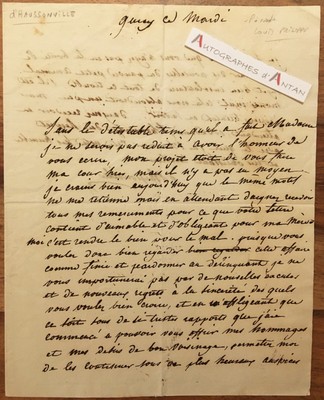 d'Haussonville
gurcy ce Mardi
Autographes
d'Antan
Sans le détestable tems qu'il a fait Madame
je ne serois pas reduit a avoir l'honneur de
vous ecrire, mon projet etoit de vous faire
ma cour hier, mais il n'y a pas eu moyen
je crains bien aujourd'huy que le meme motif
ne me retienne mais en attendant daignez recevoir
tous mes remerciments pour ce que votre lettre
contient d'aimable et d'obligeant pour ma
moi c'est rendre le bien pour le mal. puisque vous
voulez donc bien regarder cette affaire
comme finie et pardonner au delinquant je ne
vous importunerai pas par de nouvelles excuses
et de nouveaux regrets a la sincerité des quels
vous voulez bien croire, et en m'affligeant que
ce soit sous de si tristes rapports que j'aie
commencé a pouvoir vous offrir mes hommages
et mes debuts de bon voisinage, permettez moi
de les continuer sous de plus heureux auspices